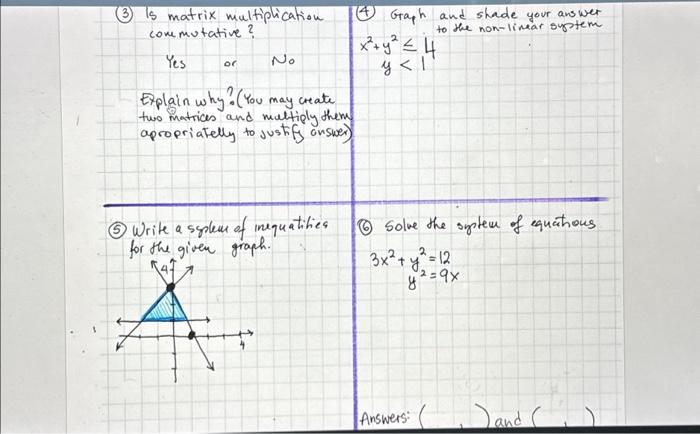 ③ Is matrix multiplication
commutative?
Yes or No
Explain why? (You may create
two matrices and multiply them
apropriatelly to justify answer)
④ Graph and shade your answer
to the non-linear system
x² + y² ≤ 4
y < 1
⑤ Write a system of inequalities
for the given graph.
4
4
⑥ Solve the system of equations
3x² + y² = 12
y² = 9x
Answers: ( , ) and ( , )